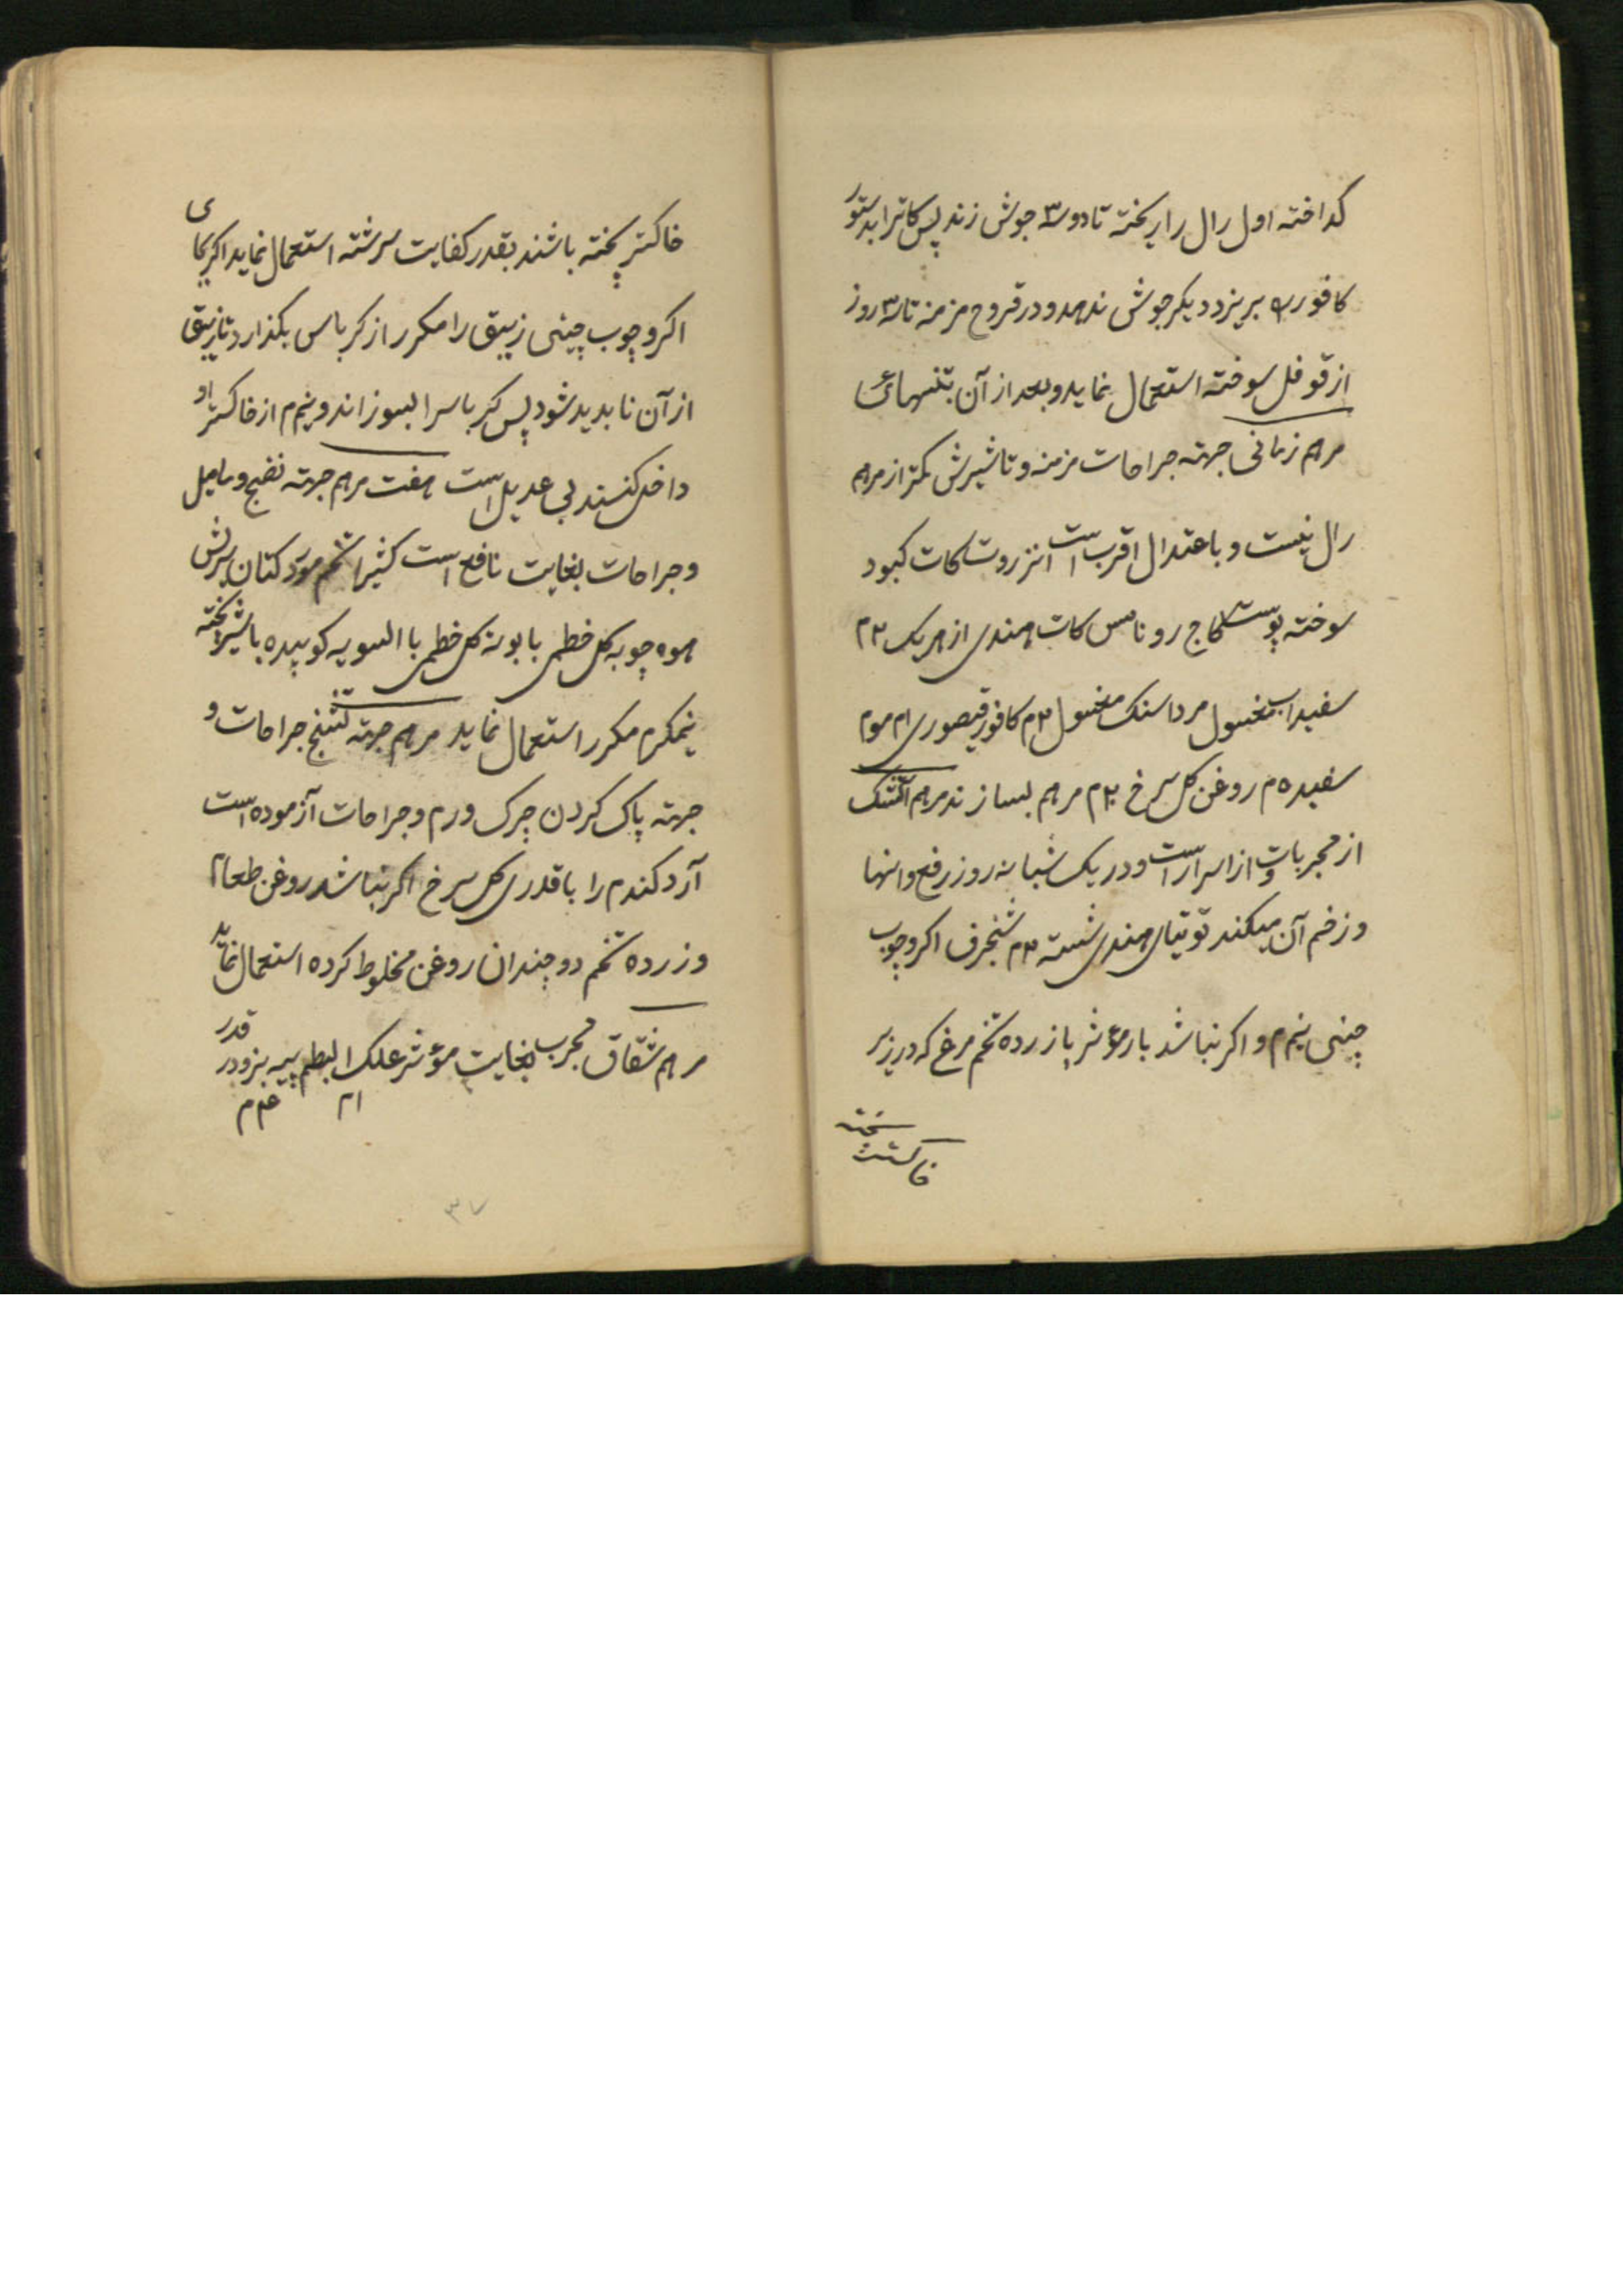 کداخته اول رال را ریخته تا دو سه جوش زند پس کاترا بدستور
کافور را بریزد دیکر جوش ندهد و در قروح مزمنه تا سه روز
از قوفل سوخته استعمال نماید و بعد از آن بتنهائی
مرهم زمانی جهته جراحات مزمنه و تاثیرش کمتر از مرهم
رال نیست و باعتدال اقرب است انزروت کات کبود
سوخته پوست کاج روناس کات هندی از هریک ۲م
سفیداب مغسول مرداسنک مغسول ۲م کافور قیصوری ام موم
سفید ۵م روغن کل سرخ ۲۰م مرهم بسازند مرهم آتشک
از مجربات و از اسرار است و در یک شبانه روز رفع وانها
و زخم آن میکند توتیای هندی شسته ۲م شنجرف اکر و چوب
چینی نیم م و اکر نباشد بار مؤثر با زرده تخم مرغ که در زیر
خاکستر پخته
خاکستر پخته باشند بقدر کفایت سرشته استعمال نماید اکر بجای
اکر و چوب چینی زیبق را مکرر از کرباس بکذارد تا زیبق
از آن نابدید شود پس کرباسرا بسوزاند و نیم م از خاکستر او
داخل کنند بی عدیل است هفت مرهم جهته نضج و مامل
و جراحات بغایت نافع است کثیرا تخم مرو کتان برزش
هوه چوبه کل خطمی بابونه کل خطمی با السویه کوبیده با شیر پخته
نیمکرم مکرر استعمال نماید مرهم جهته تشنج جراحات و
جهته پاک کردن چرک ورم و جراحات آزموده است
آرد کندم را با قدری کل سرخ اکر نباشد روغن طعام
و زرده تخم دو چندان روغن مخلوط کرده استعمال نماید
مرهم شقاق مجرب بغایت مؤثر علک البطم پیه بز و در قدر
ام ۴م م
۳۷